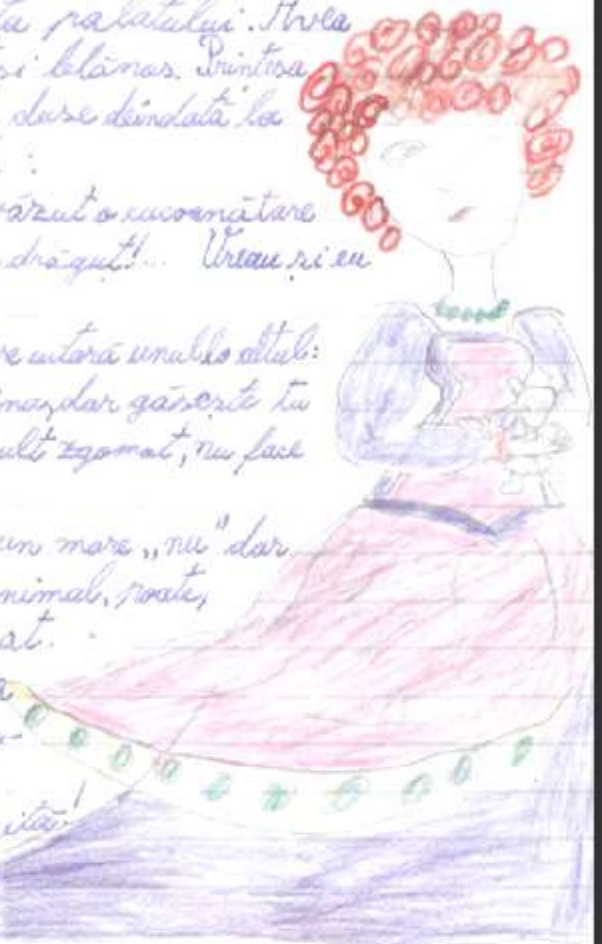 ta palatului. Avea
și blănos. Prințesa
duse deîndată la
:
văzut o cucoană tare
drăguț!... Vreau și eu
se uitară unul la altul:
dar găsește tu
ult zgomot, nu face
un mare „nu" dar
nimal, poate,
at.
a
ită!